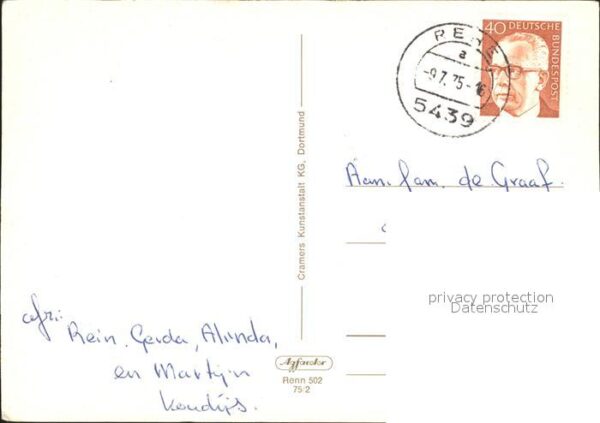 40 DEUTSCHE
BUNDESPOST
REHE
a
-9.7.75-16
5439
Cramers Kunstanstalt KG, Dortmund
Aan fam. de Graaf.
privacy protection
Datenschutz
afz:
Rein, Gerda, Alinda,
en Martijn
Kondijs.
Renn 502
75-2